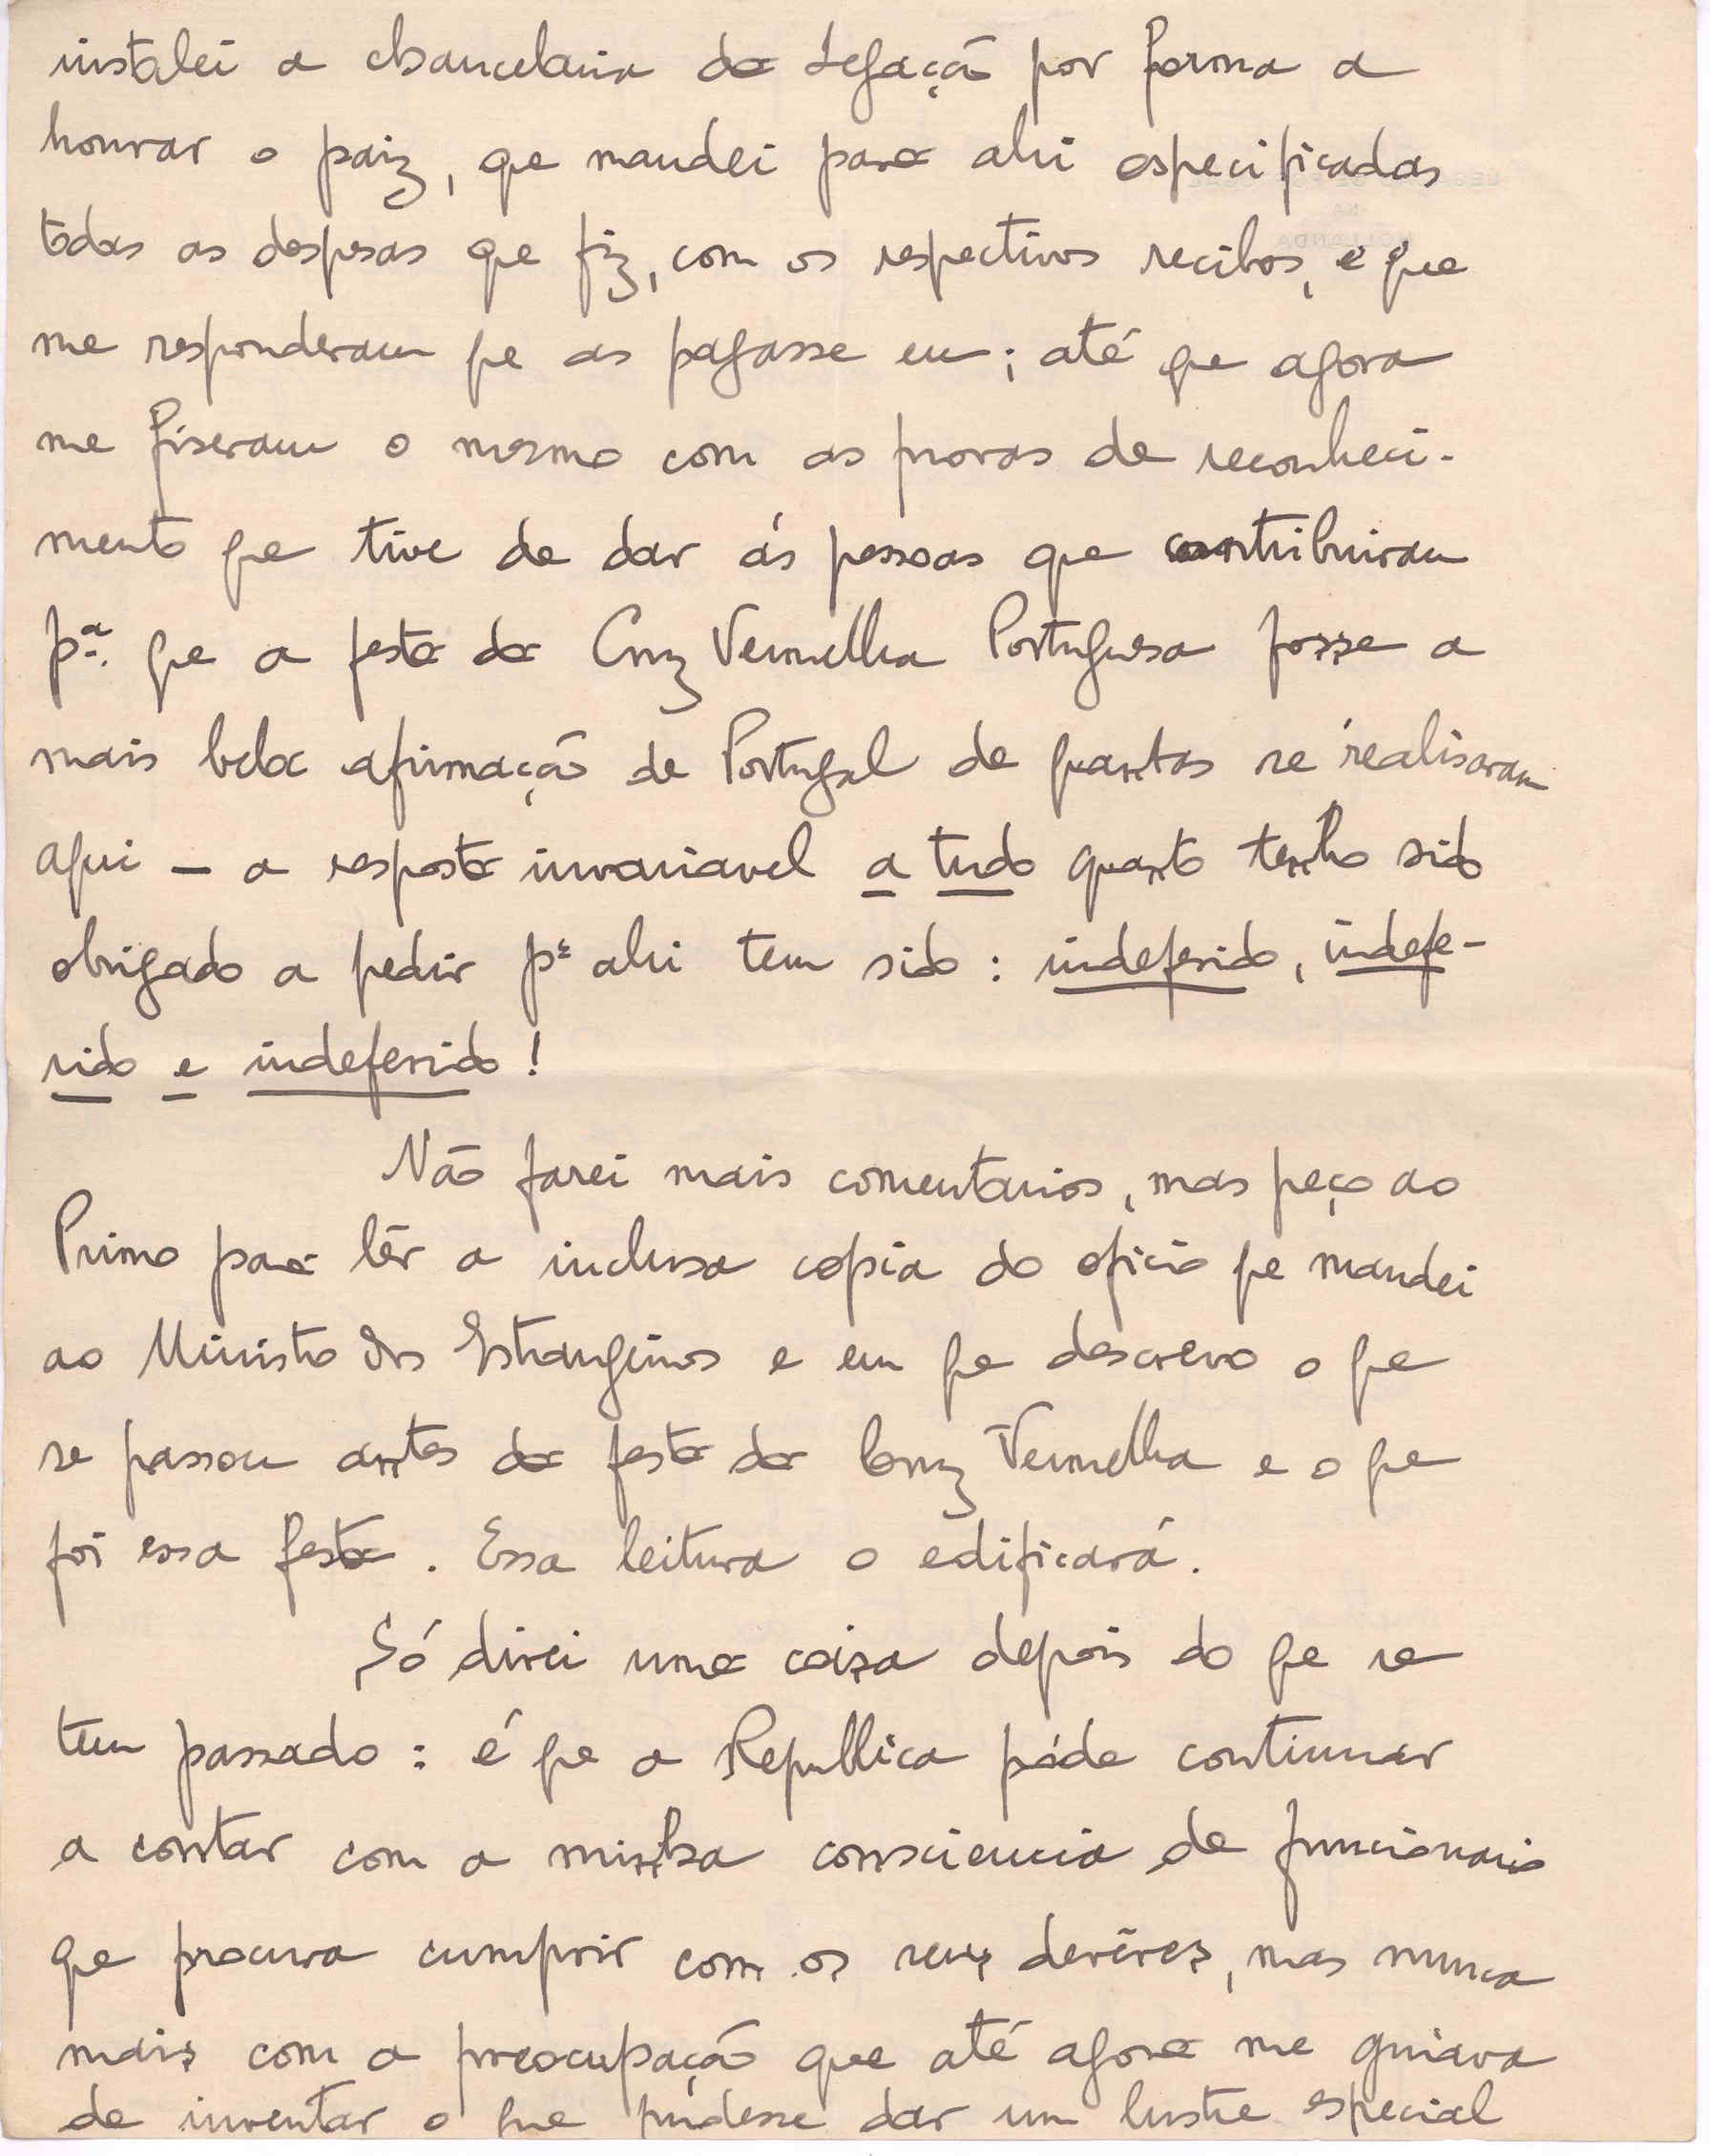 instalei a chancelaria da Legação por forma a
honrar o paiz, que mandei para ahi especificadas
todas as despesas que fiz, com os respectivos recibos, e que
me responderam que as pagasse eu; até que agora
me fiseram o mesmo com as provas de reconheci-
mento que tive de dar ás pessoas que contribuiram
pª. que a festa da Cruz Vermelha Portuguesa fosse a
mais bela afirmação de Portugal de quantas se realisaram
aqui – a resposta invariavel a tudo quanto tenho sido
obrigado a pedir pª ahi tem sido: indeferido, indefe-
rido e indeferido!
Não farei mais comentarios, mas peço ao
Primo para lêr a inclusa copia do oficio que mandei
ao Ministro dos Estrangeiros e em que descrevo o que
se passou antes da festa da Cruz Vermelha e o que
foi essa festa. Essa leitura o edificará.
Só direi uma coisa depois do que se
tem passado: é que a Republica póde continuar
a contar com a minha consciencia de funcionario
que procura cumprir com os seus devêres, mas nunca
mais com a preocupação que até agora me guiava
de inventar o que pudesse dar um lustre especial
NA
HOLLANDA